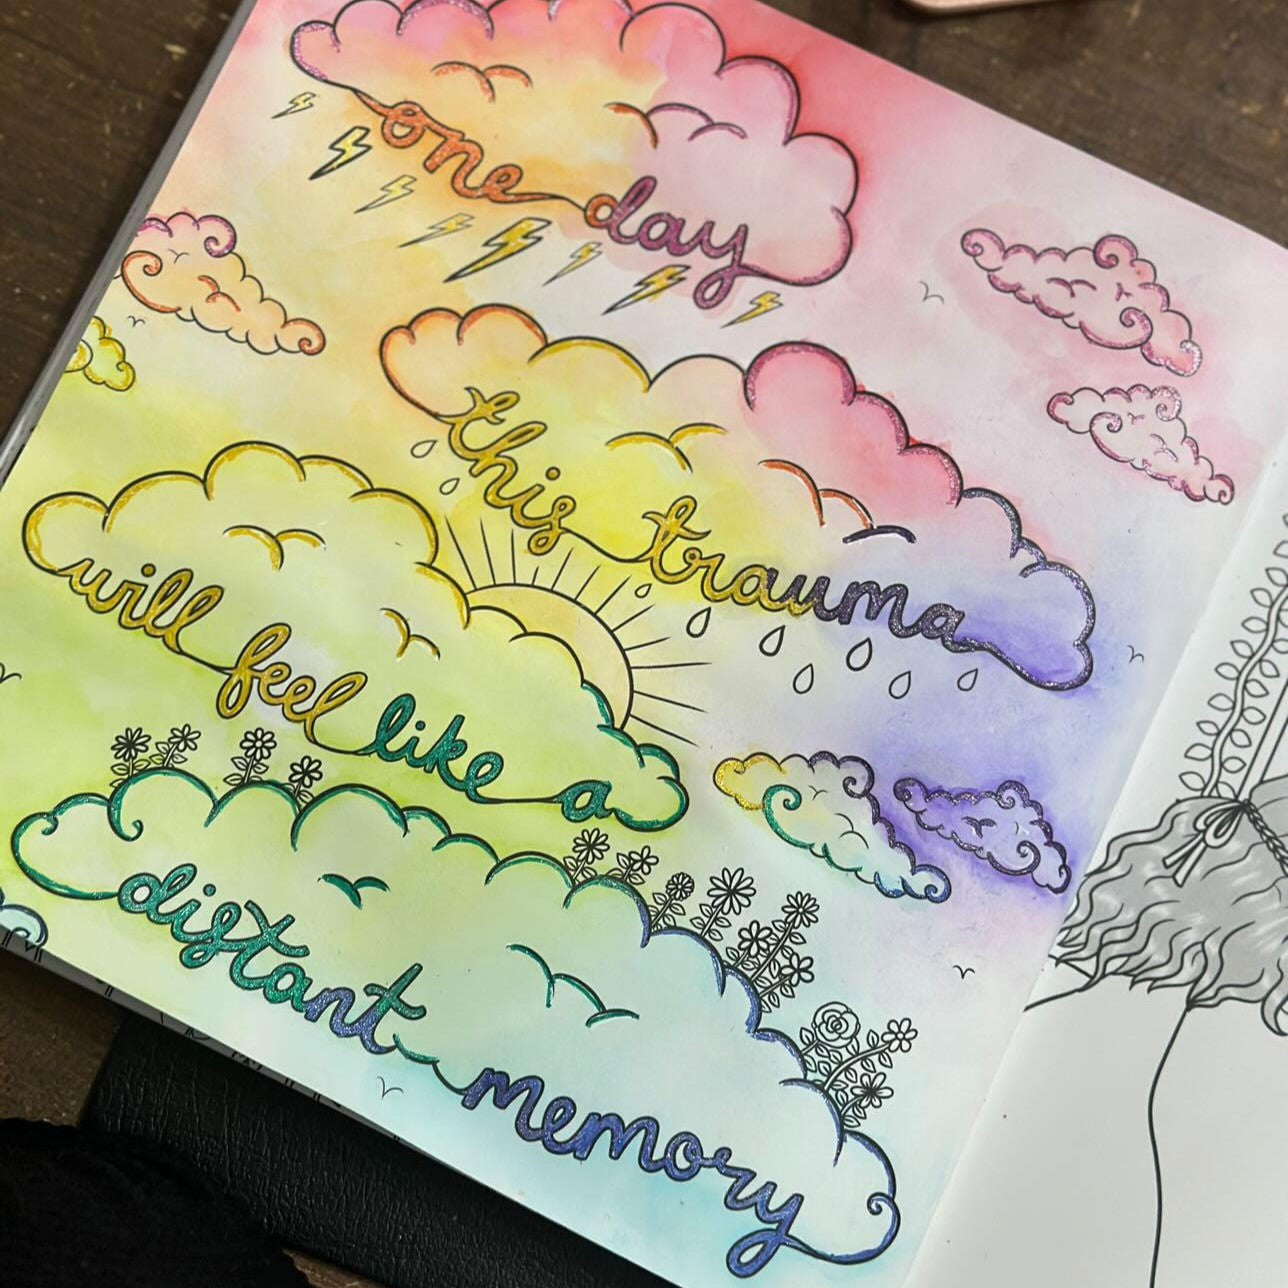 one day
this trauma
will feel like a
distant memory